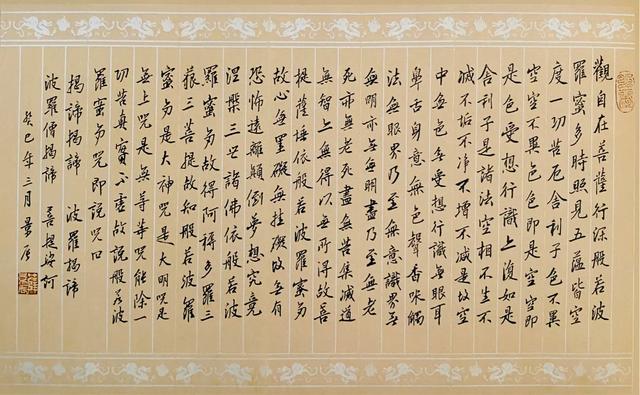 觀自在菩薩行深般若波
羅蜜多時照見五蘊皆空
度一切苦厄舍利子色不異
空空不異色色即是空空即
是色受想行識亦復如是
舍利子是諸法空相不生不
滅不垢不淨不增不減是故空
中無色無受想行識無眼耳
鼻舌身意無色聲香味觸
法無眼界乃至無意識界無
無明亦無無明盡乃至無老
死亦無老死盡無苦集滅道
無智亦無得以無所得故菩
提薩埵依般若波羅蜜多
故心無罣礙無罣礙故無有
恐怖遠離顛倒夢想究竟
涅槃三世諸佛依般若波
羅蜜多故得阿耨多羅三
藐三菩提故知般若波羅
蜜多是大神咒是大明咒是
無上咒是無等等咒能除一
切苦真實不虛故說般若波
羅蜜多咒即說咒曰
揭諦揭諦 波羅揭諦
波羅僧揭諦 菩提娑訶
癸巳年三月